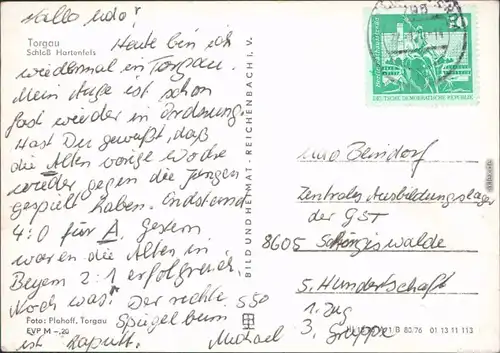 Hallo Udo!
Torgau
Schloß Hartenfels
Heute bin ich
wiedermal in Torgau.
Mein Auge ist schon
fast wieder in Ordnung.
Hast Du gewußt, daß
die Alten vorige Woche
wieder gegen die Jungen
gespielt haben. Endstand
4:0 für A. Gestern
waren die Alten in
Beyern 2:1 erfolgreich.
Noch was! Der rechte S50
Spiegel beim
ist kaputt. Michael
Foto: Plohoff, Torgau
EVP M -,20
BILD UND HEIMAT · REICHENBACH I. V.
DEUTSCHE DEMOKRATISCHE REPUBLIK
Udo Bendorf
Zentrales Ausbildungslager
der GST
8605 Schirgiswalde
5. Hundertschaft
1. Zug
3. Gruppe
B 80/76 01 13 11 113